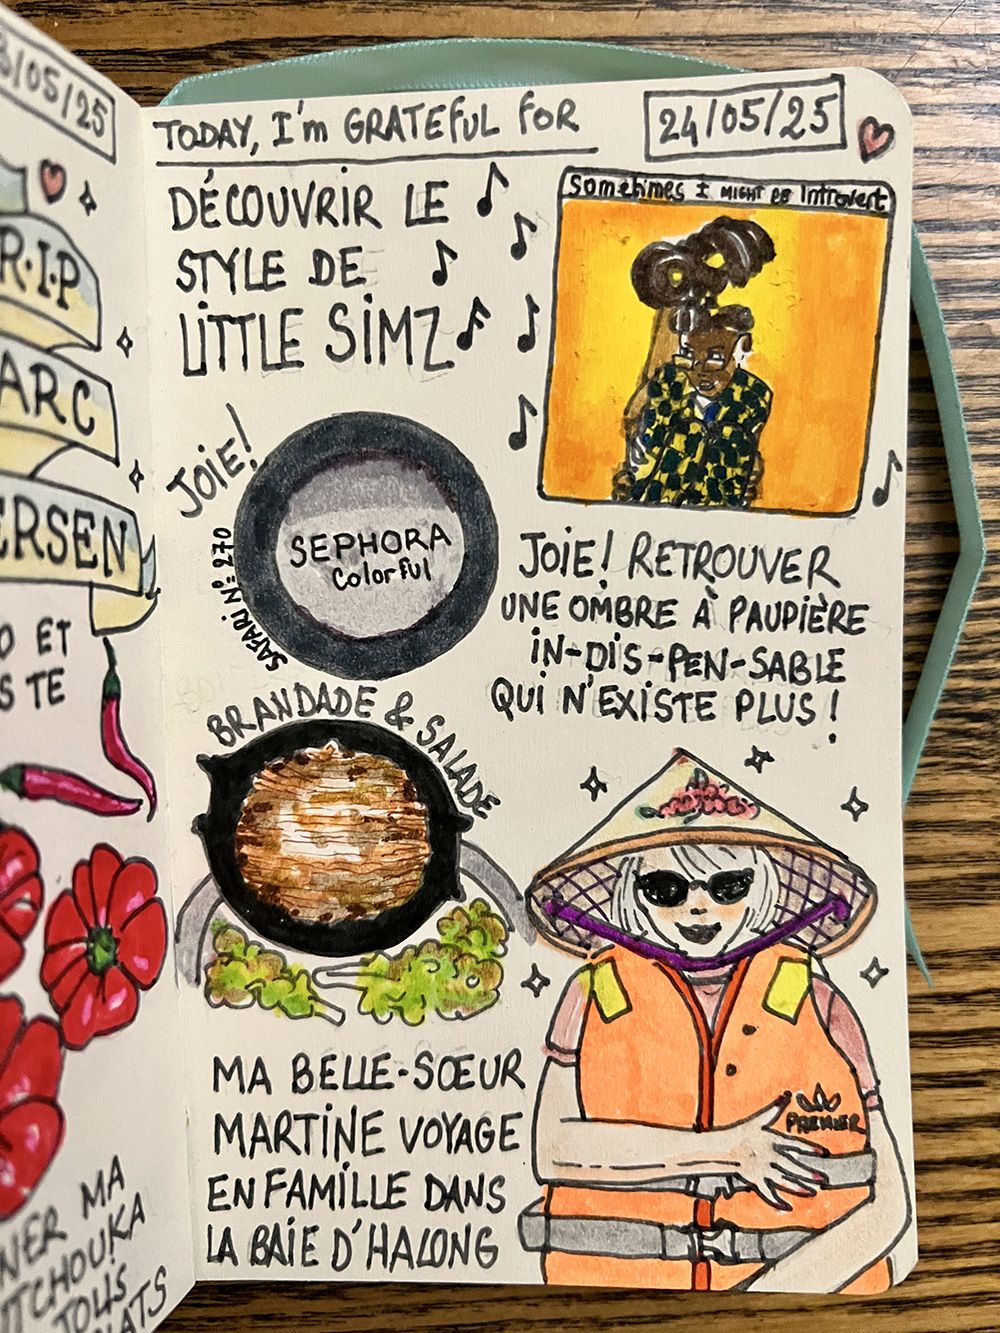 3/05/25
R.I.P
ARC
ERSEN
O ET
S TE
NER MA
TCHOUKA
TOUS
LATS
TODAY, I'm GRATEFUL FOR
24/05/25
DÉCOUVRIR LE
STYLE DE
LITTLE SIMZ
Sometimes I MIGHT BE Introvert
JOIE!
SEPHORA
Colorful
SAFARI N° 270
JOIE! RETROUVER
UNE OMBRE À PAUPIÈRE
IN-DIS-PEN-SABLE
QUI N'EXISTE PLUS!
BRANDADE & SALADE
MA BELLE-SŒUR
MARTINE VOYAGE
EN FAMILLE DANS
LA BAIE D'HALONG
PREMIER